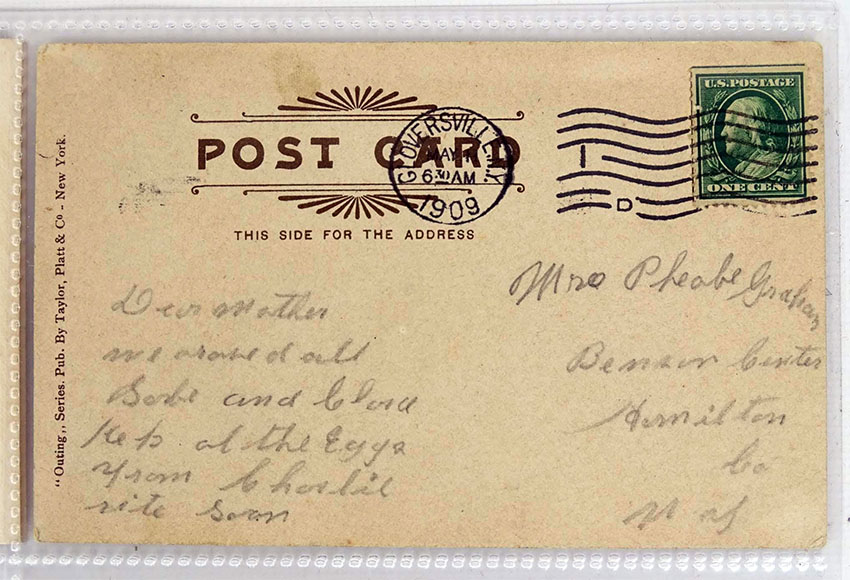 POST CARD
THIS SIDE FOR THE ADDRESS
GLOVERSVILLE, N.Y.
MAY
6 30 AM
1909
1
D
U.S. POSTAGE
ONE CENT
"Outing,, Series. Pub. By Taylor, Platt & Co - New York.
Dear Mother
we arived all
and
Kep al the Eggs
from Charlie
rite soon
Mrs Pheobe Graham
Benson Center
Hamilton
Co
N Y